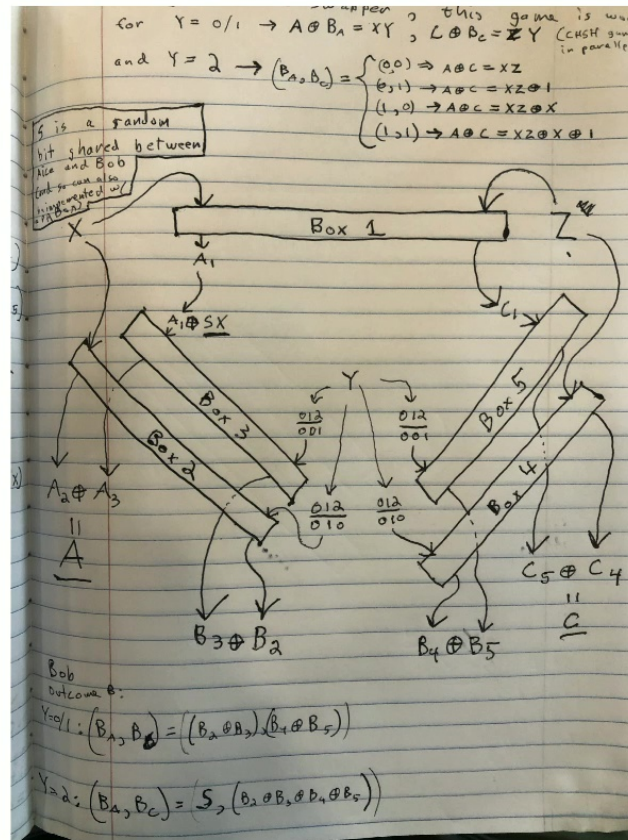 this game is
for Y = 0/1 → A⊕B_A = XY , C⊕B_C = ZY (CHSH
in parallel
and Y = 2 → (B_A, B_C) = { (0,0) ⇒ A⊕C = XZ
(0,1) ⇒ A⊕C = XZ⊕1
(1,0) ⇒ A⊕C = XZ⊕X
(1,1) ⇒ A⊕C = XZ⊕X⊕1
S is a random
bit shared between
Alice and Bob
(and so can also
implemented w/
X
Box 1
Z
A_1
A_1⊕SX
C_1
Box 3
Box 5
Y
012
001
012
001
Box 2
Box 4
012
010
012
010
A_2 ⊕ A_3
=
A
C_5 ⊕ C_4
=
C
B_3 ⊕ B_2
B_4 ⊕ B_5
Bob
outcome B:
Y=0/1: (B_A, B_C) = ((B_2⊕B_3), (B_4⊕B_5))
Y=2: (B_A, B_C) = (S, (B_2⊕B_3⊕B_4⊕B_5))